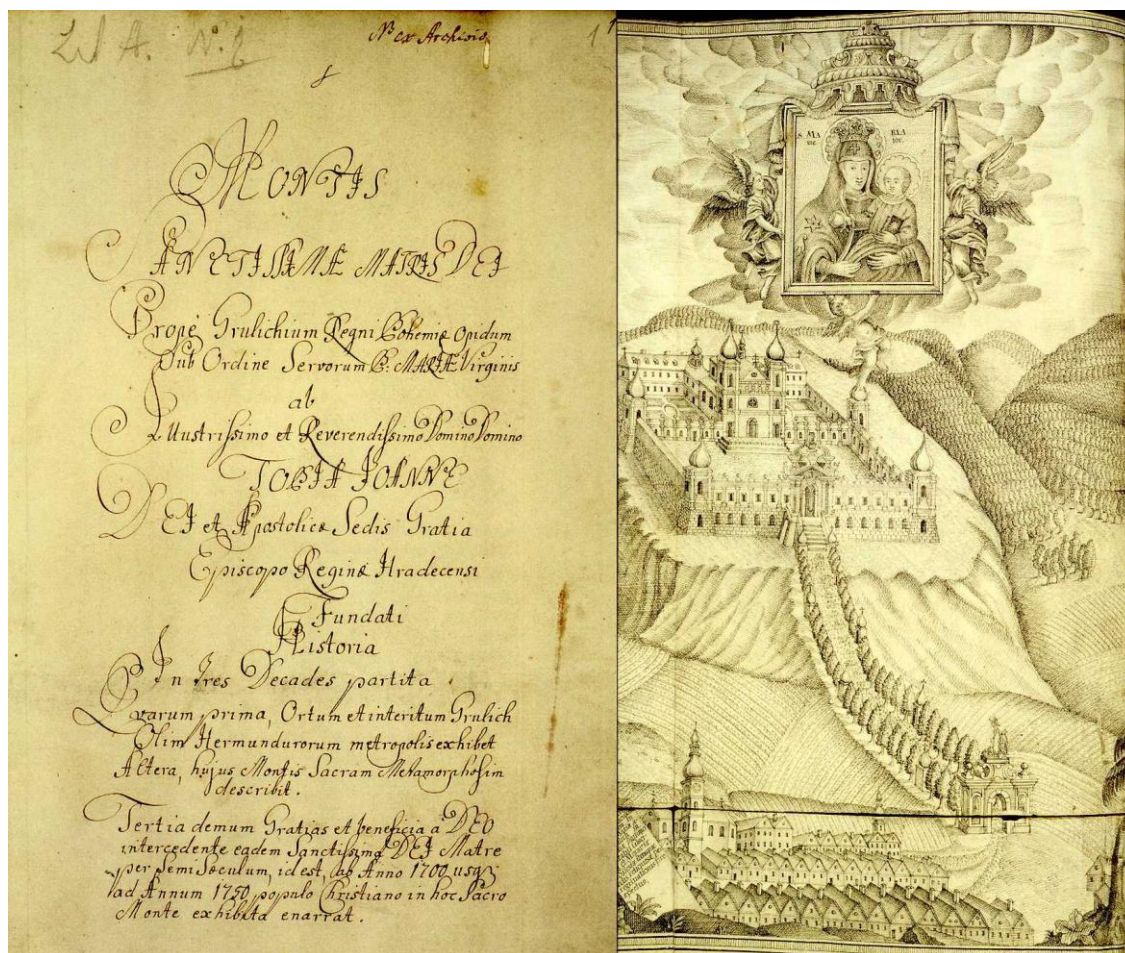 Lit A. N. 1
N ex Archivio
MONTIS
SANCTISSIMÆ MATRIS DEI
Prope Grulichium Regni Bohemiæ Opidum
Sub Ordine Servorum B: MARIÆ Virginis
ab
Illustrissimo et Reverendissimo Domino Domino
TOBIA IOANNE
DEI et Apostolicæ Sedis Gratia
Episcopo Reginæ Hradecensi
Fundati
Historia
In Tres Decades partita
Quarum prima, Ortum et interitum Grulich
Olim Hermundurorum metropolis exhibet
Altera, hujus Montis Sacram Metamorphosim
describit.
Tertia demum Gratias et beneficia à DEO
intercedente eadem Sanctissima DEI Matre
per Semi Sæculum, id est, ab Anno 1700 usq;
ad Annum 1750 populo Christiano in hoc Sacro
Monte exhibita enarrat.
S. MA RIA